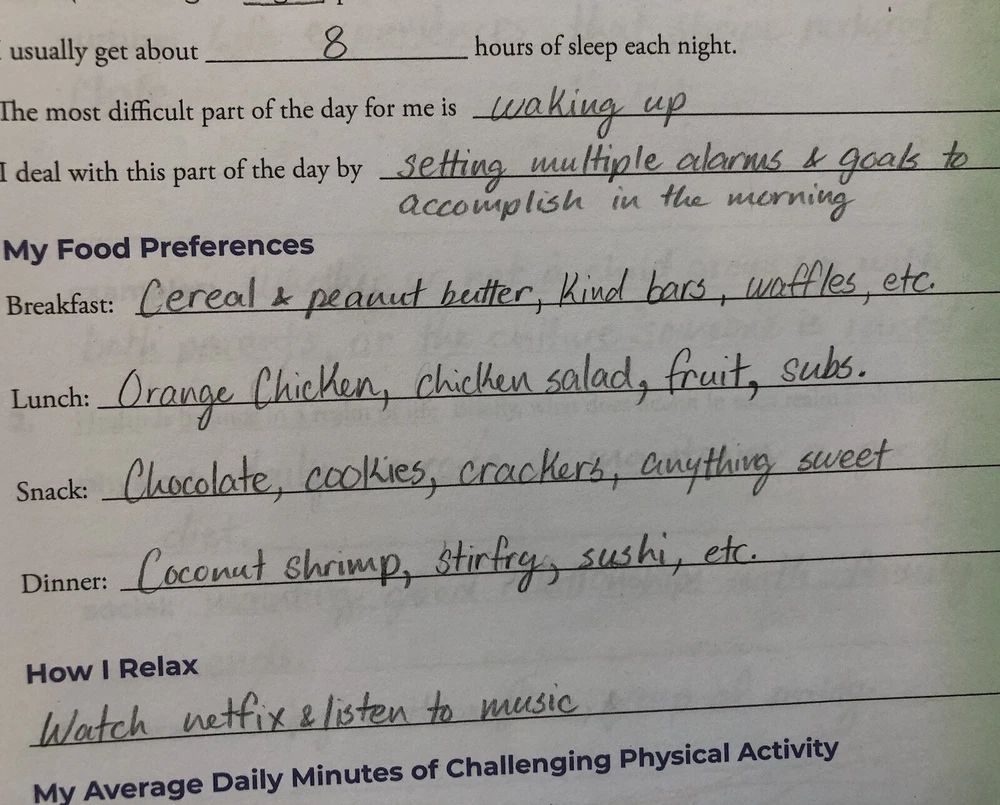 usually get about 8 hours of sleep each night.
The most difficult part of the day for me is waking up
I deal with this part of the day by setting multiple alarms & goals to
accomplish in the morning
My Food Preferences
Breakfast: Cereal & peanut butter, Kind bars, waffles, etc.
Lunch: Orange Chicken, chicken salad, fruit, subs.
Snack: Chocolate, cookies, crackers, anything sweet
Dinner: Coconut shrimp, stirfry, sushi, etc.
How I Relax
Watch netfix & listen to music
My Average Daily Minutes of Challenging Physical Activity